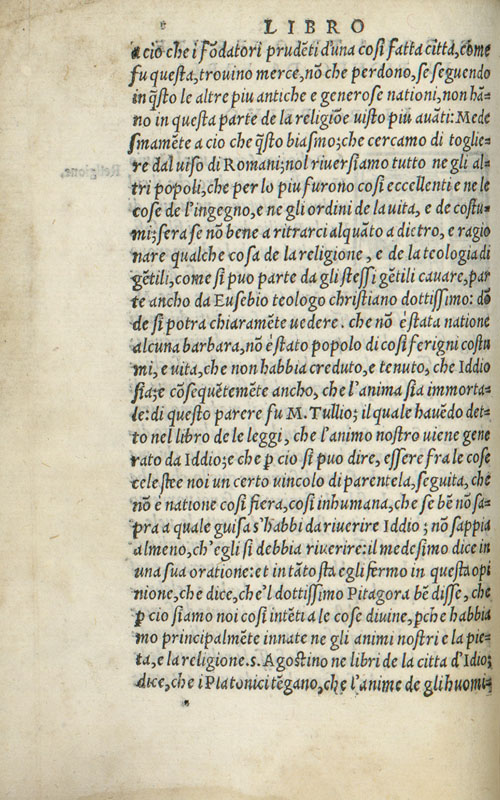 LIBRO
a cio che i fõdatori prudẽti d'una cosi fatta città, come
fu questa, trovino merce, nõ che perdono, se seguendo
in q̃sto le altre piu antiche e generose nationi, non hã-
no in questa parte de la religiõe uisto più auãti: Mede
smamẽte a cio che q̃sto biasmo; che cercamo di toglie-
re dal uiso di Romani; nol riversiamo tutto ne gli al-
tri popoli, che per lo piu furono cosi eccellenti e ne le
cose de l'ingegno, e ne gli ordini de la uita, e de costu-
mi; sera se nõ bene a ritrarci alquãto a dietro, e ragio
nare qualche cosa de la religione, e de la teologia di
gẽtili, come si puo parte da gli stessi gẽtili cauare, par
te ancho da Eusebio teologo christiano dottissimo: dõ
de si potra chiaramẽte uedere. che nõ è stata natione
alcuna barbara, nõ è stato popolo di cosi ferigni costu
mi, e uita, che non habbia creduto, e tenuto, che Iddio
sia; e cõsequẽtemẽte ancho, che l'anima sia immorta-
le: di questo parere fu M. Tullio; il quale hauẽdo det-
to nel libro de le leggi, che l'animo nostro uiene gene
rato da Iddio; e che p cio si puo dire, essere fra le cose
celeste e noi un certo uincolo di parentela, seguita, che
nõ è natione cosi fiera, cosi inhumana, che se bẽ nõ sa-
pra a quale guisa s'habbi da riuerire Iddio; nõ sappia
almeno, ch'egli si debbia riuerire: il medesimo dice in
una sua oratione: et in tãto sta egli fermo in questa opi
nione, che dice, che'l dottissimo Pitagora bẽ disse, che
p cio siamo noi cosi intẽti a le cose diuine, pche habbia
mo principalmẽte innate ne gli animi nostri e la pie-
ta, e la religione. s. Agostino ne libri de la citta d'Idio;
dice, che i Platonici tẽgano, che l'anime de gli huomi-